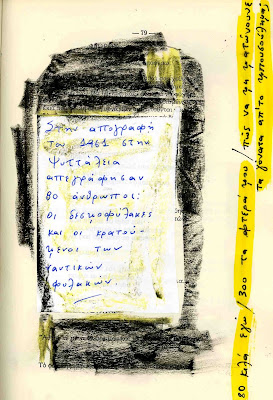 — 79 —
Στην απογραφή
του 1961 στην
Ψυττάλεια
απεγράφησαν
80 άνθρωποι:
οι δεσμοφύλακες
και οι κρατού-
μενοι των
ναυτικών
φυλακών.
80 κιλά εγώ / 300 τα φτερά μου / πώς να μη ματώνουνε
τα γόνατα απ'το